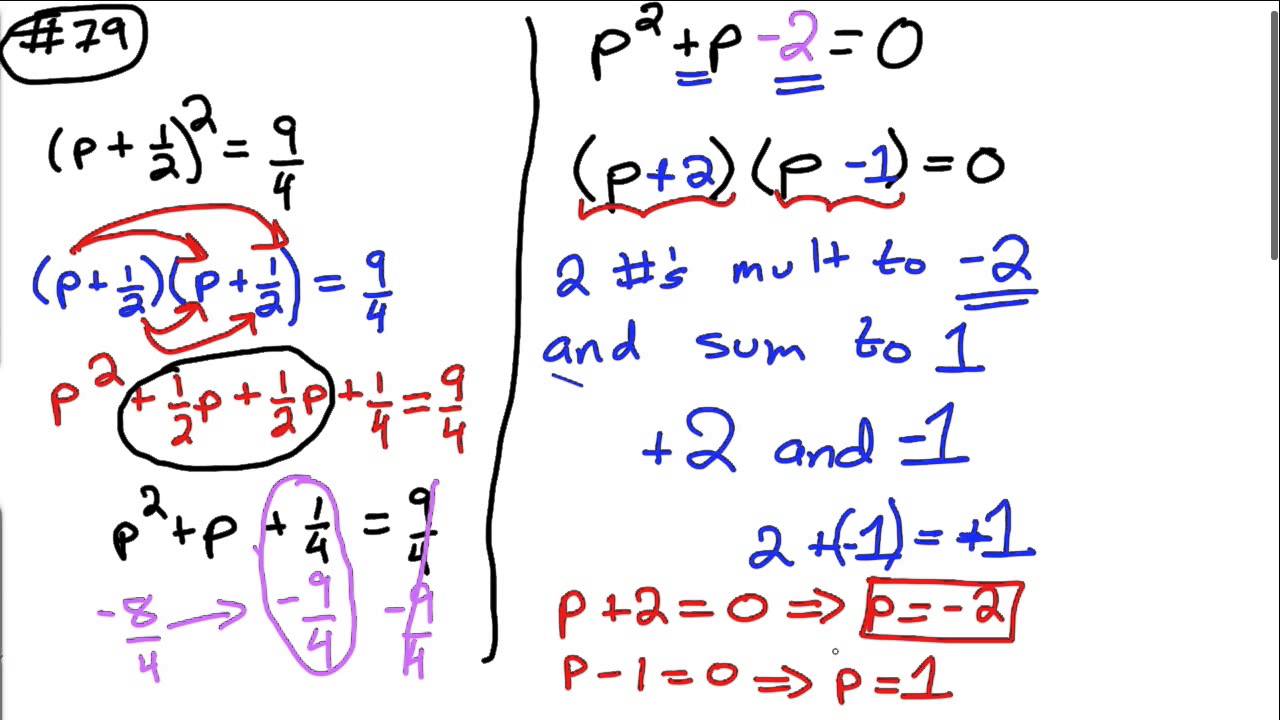 #79
(p + 1/2)² = 9/4
(p + 1/2)(p + 1/2) = 9/4
p² + 1/2 p + 1/2 p + 1/4 = 9/4
p² + p + 1/4 = 9/4
-8/4 → -9/4 -9/4
p² + p - 2 = 0
(p + 2)(p - 1) = 0
2 #'s mult to -2
and sum to 1
+2 and -1
2 + (-1) = +1
p + 2 = 0 ⇒ p = -2
p - 1 = 0 ⇒ p = 1